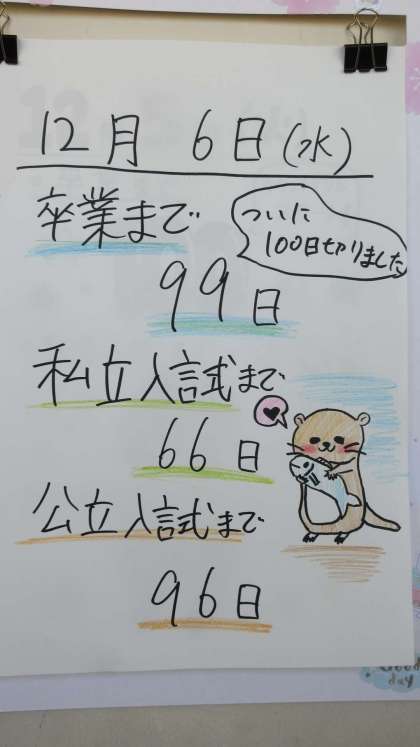 12月 6日(水)
卒業まで
ついに
100日切りました
99日
私立入試まで
66日
公立入試まで
96日
Good
day